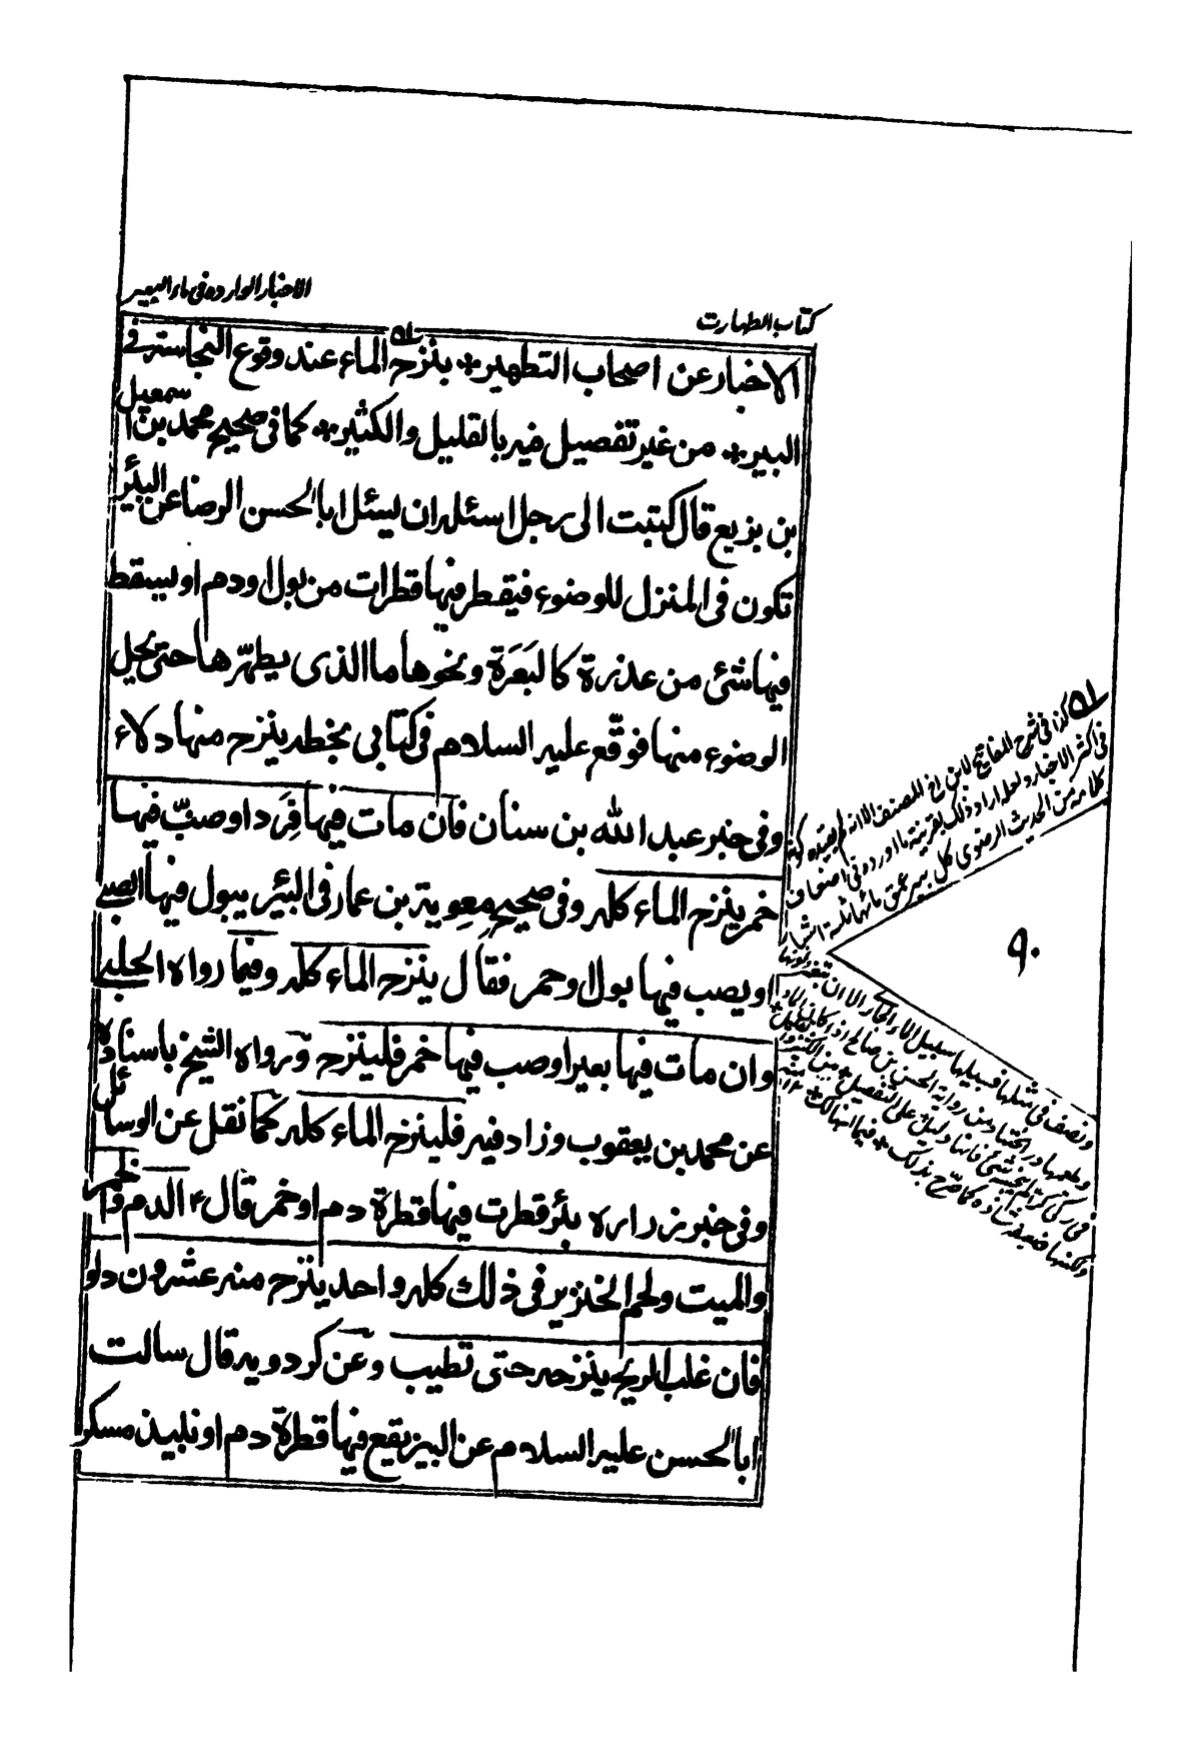 كتاب الطهارت
الاخبار الوارده فى ماء البير
الاخبار عن اصحاب التطهير بنزح الماء عند وقوع النجاسة فى
البير من غير تفصيل فيه بالقليل والكثير كما فى صحيح محمد بن اسمعيل
بن بزيع قال كتبت الى رجل اسئله ان يسئل ابا الحسن الرضا عن البئر
تكون فى المنزل للوضوء فيقطر فيها قطرات من بول او دم او يسقط
فيها شئ من عذرة كالبَعَرَة ونحوها ما الذى يطهّرها حتى يحل
الوضوء منها فوقّع عليه السلام فى كتابى بخطه ينزح منها دلاء
وفى خبر عبد الله بن سنان فان مات فيها قِرَد او صبّ فيها
خمر ينزح الماء كله وفى صحيح معوية بن عمار فى البئر يبول فيها الصبى
او يصب فيها بول او خمر فقال ينزح الماء كله وفيما رواه الحلبى
وان مات فيها بعير او صب فيها خمر فلينزح ورواه الشيخ باسناده
عن محمد بن يعقوب وزاد فيه فلينزح الماء كله كما نقل عن الوسائل
وفى خبر زراره بئر قطرت فيها قطرة دم او خمر قال ع الدم والخمر
والميت ولحم الخنزير فى ذلك كله واحد ينزح منه عشرون دلو
فان غلب الريح ينزحه حتى تطيب وعن كردويه قال سالت
ابا الحسن عليه السلام عن البير يقع فيها قطرة دم او نبيذ مسكر
كذا فى شرح المفاتيح لابن اخ المصنف الا انه لم يقيده
فى اكثر الاخبار ولعله اراد ذلك بقرينة ما اورده فى
كلامه من الحديث الرضوى كل بير عمق مائها ثلثة اشبار
ونصف فى مثلها فسبيلها سبيل الماء الجارى الا ان يتغير لونها
وطعمها ورائحتها ومن رواية الحسن بن صالح اذا كان الماء
فى ركى كرا لم ينجسه شئ فانها دليل على التفصيل
ولكنها ضعيفة شاذة كما صرح بذلك
٩٠